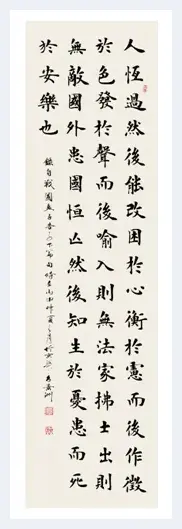 人恆過然後能改困於心衡於慮而後作徵
於色發於聲而後喻入則無法家拂士出則
無敵國外患國恒亡然後知生於憂患而死
於安樂也
錄自戰國孟子告子下篇句